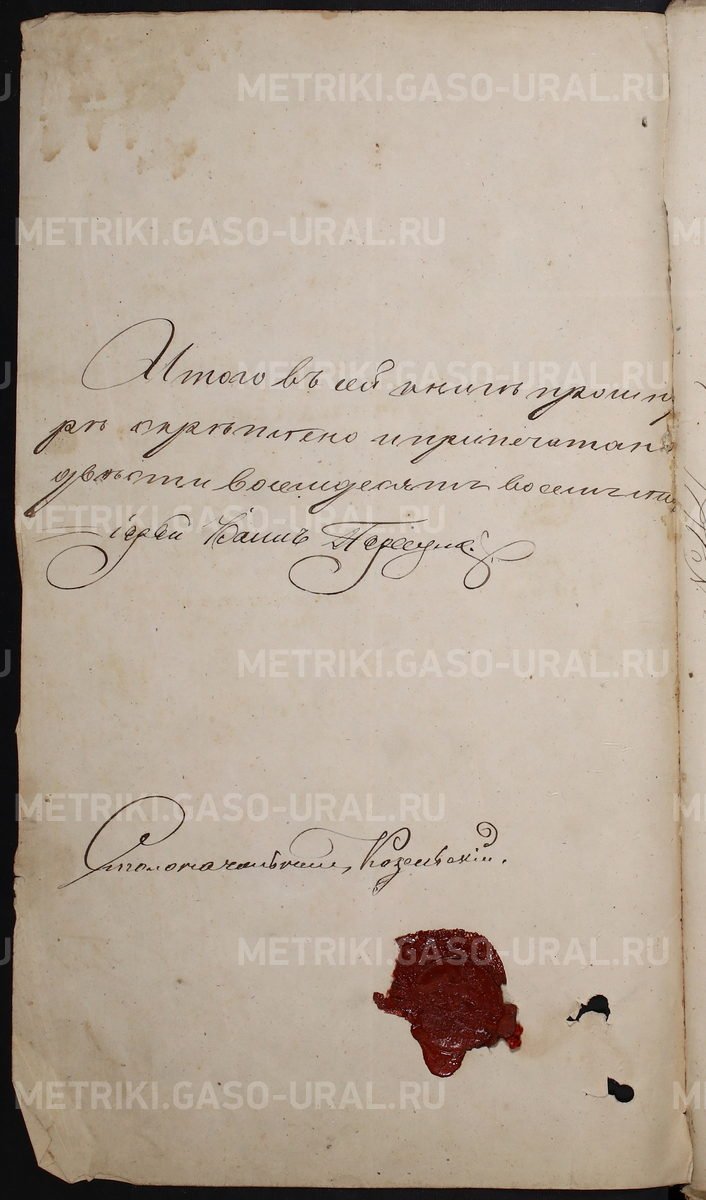 METRIKI.GASO-URAL.RU
METRIKI.GASO-URAL.RU
Итого въ сей книгѣ прошну
рѣ скрѣплено и припечатан
двѣсти восемдесятъ восемь
Іерей Іоаннъ
METRIKI.GASO-URAL.RU
METRIKI.GASO-URAL.RU
METRIKI.GASO-URAL.RU
METRIKI.GASO-URAL.RU
Столоначальникъ Козельскій.
METRIKI.GASO-URAL.RU
METRIKI.GASO-URAL.RU